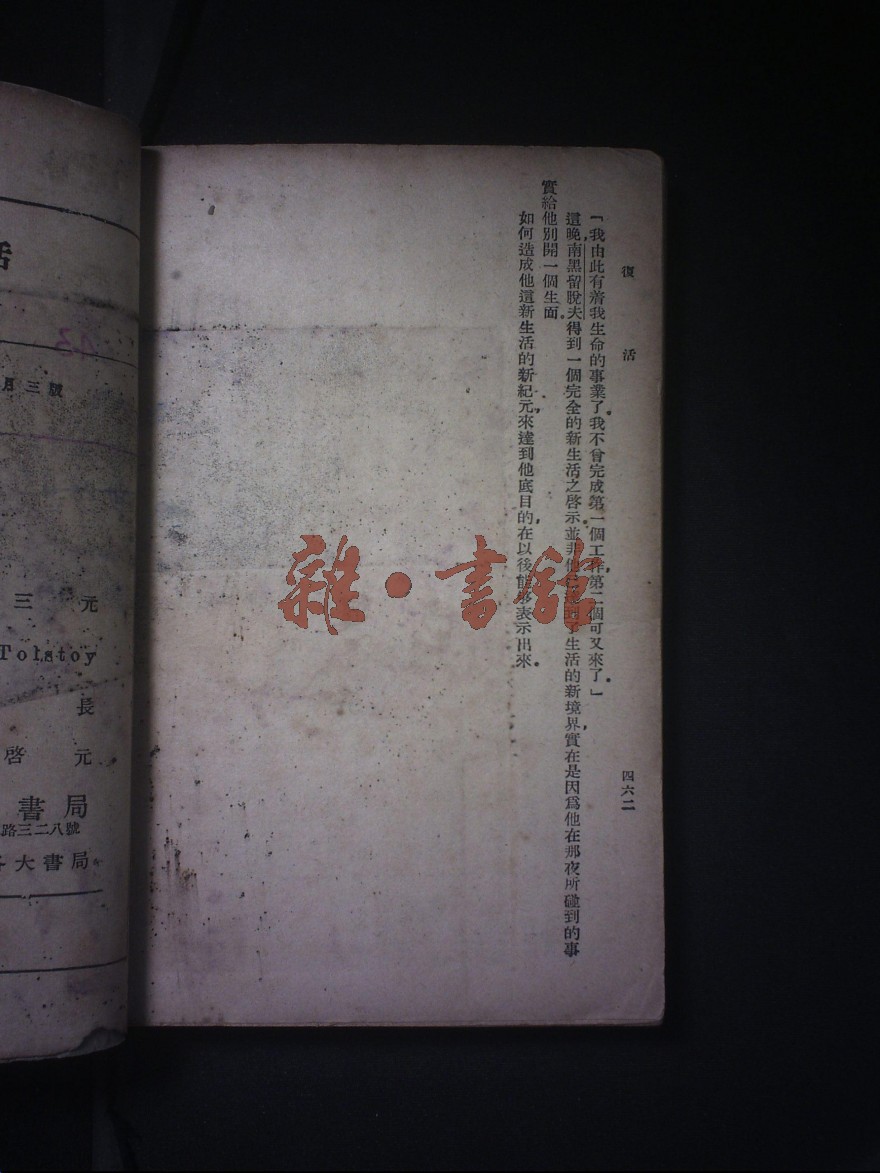 復活
「我由此有着我生命的事業了。我不曾完成第一個工作,第二個可又來了。」
這晚,南黑留脫夫得到一個完全的新生活之啓示。並非他已達到了生活的新境界,實在是因爲他在那夜所碰到的事
實給他別開一個生面。
如何造成他這新生活的新紀元,來達到他底目的,在以後能够表示出來。
四六二
雜·書館
活
月三版
三元
Tolstoy
長
啓元
書局
路三二八號
各大書局